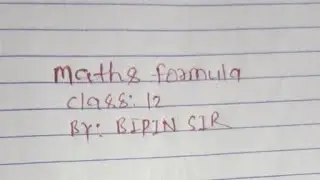 Maths formula
class: 12
By: BIPIN SIR